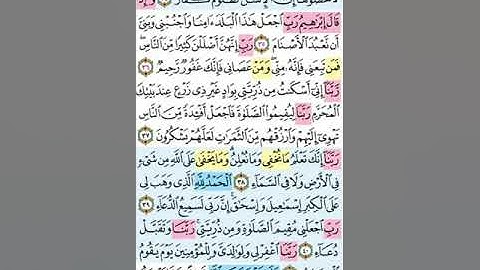 قَالَ إِبْرَٰهِيمُ رَبِّ ٱجْعَلْ هَٰذَا ٱلْبَلَدَ ءَامِنًا وَٱجْنُبْنِى وَبَنِىَّ
أَن نَّعْبُدَ ٱلْأَصْنَامَ ٣٥ رَبِّ إِنَّهُنَّ أَضْلَلْنَ كَثِيرًا مِّنَ ٱلنَّاسِ ۖ
فَمَن تَبِعَنِى فَإِنَّهُۥ مِنِّى ۖ وَمَنْ عَصَانِى فَإِنَّكَ غَفُورٌ رَّحِيمٌ ٣٦
رَّبَّنَآ إِنِّىٓ أَسْكَنتُ مِن ذُرِّيَّتِى بِوَادٍ غَيْرِ ذِى زَرْعٍ عِندَ بَيْتِكَ
ٱلْمُحَرَّمِ رَبَّنَا لِيُقِيمُوا۟ ٱلصَّلَوٰةَ فَٱجْعَلْ أَفْـِٔدَةً مِّنَ ٱلنَّاسِ
تَهْوِىٓ إِلَيْهِمْ وَٱرْزُقْهُم مِّنَ ٱلثَّمَرَٰتِ لَعَلَّهُمْ يَشْكُرُونَ ٣٧
رَبَّنَآ إِنَّكَ تَعْلَمُ مَا نُخْفِى وَمَا نُعْلِنُ ۗ وَمَا يَخْفَىٰ عَلَى ٱللَّهِ مِن شَىْءٍ
فِى ٱلْأَرْضِ وَلَا فِى ٱلسَّمَآءِ ٣٨ ٱلْحَمْدُ لِلَّهِ ٱلَّذِى وَهَبَ لِى
عَلَى ٱلْكِبَرِ إِسْمَٰعِيلَ وَإِسْحَٰقَ ۚ إِنَّ رَبِّى لَسَمِيعُ ٱلدُّعَآءِ ٣٩
رَبِّ ٱجْعَلْنِى مُقِيمَ ٱلصَّلَوٰةِ وَمِن ذُرِّيَّتِى ۚ رَبَّنَا وَتَقَبَّلْ
دُعَآءِ ٤٠ رَبَّنَا ٱغْفِرْ لِى وَلِوَٰلِدَىَّ وَلِلْمُؤْمِنِينَ يَوْمَ يَقُومُ